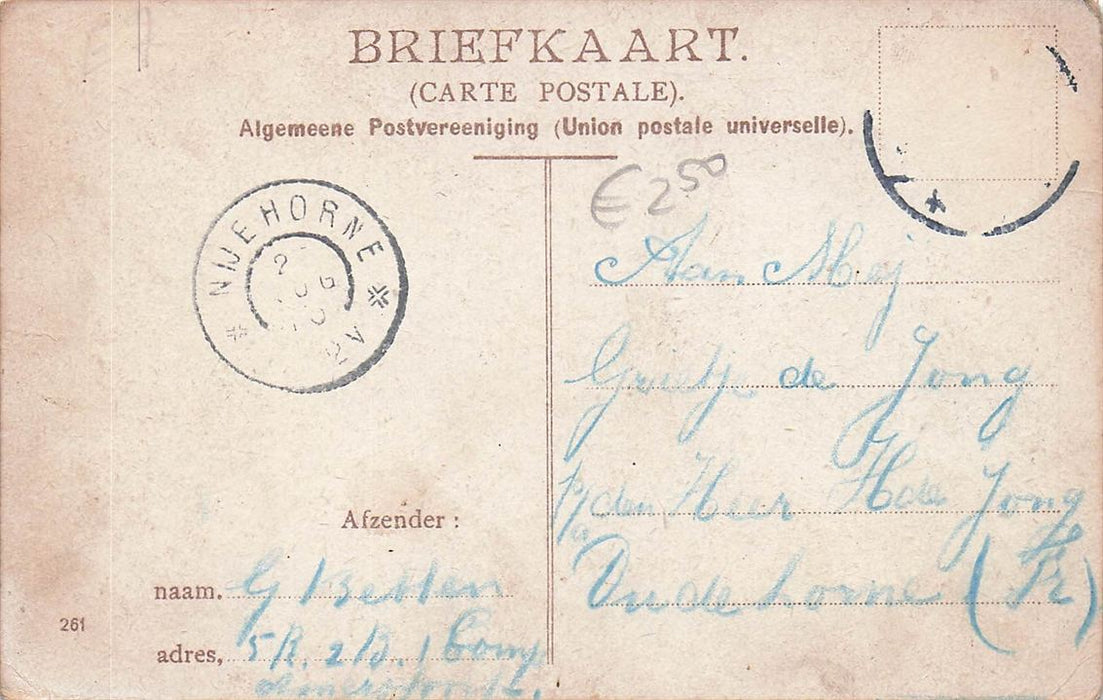 BRIEFKAART.
(CARTE POSTALE).
Algemeene Postvereeniging (Union postale universelle).
€ 250
NIJEHORNE
2V
Aan Mej
Grietje de Jong
p/a den Heer H de Jong
Oudehorne (Fr)
Afzender :
naam. G Betten
261
adres, 5 R. 2 B. 1 Comp